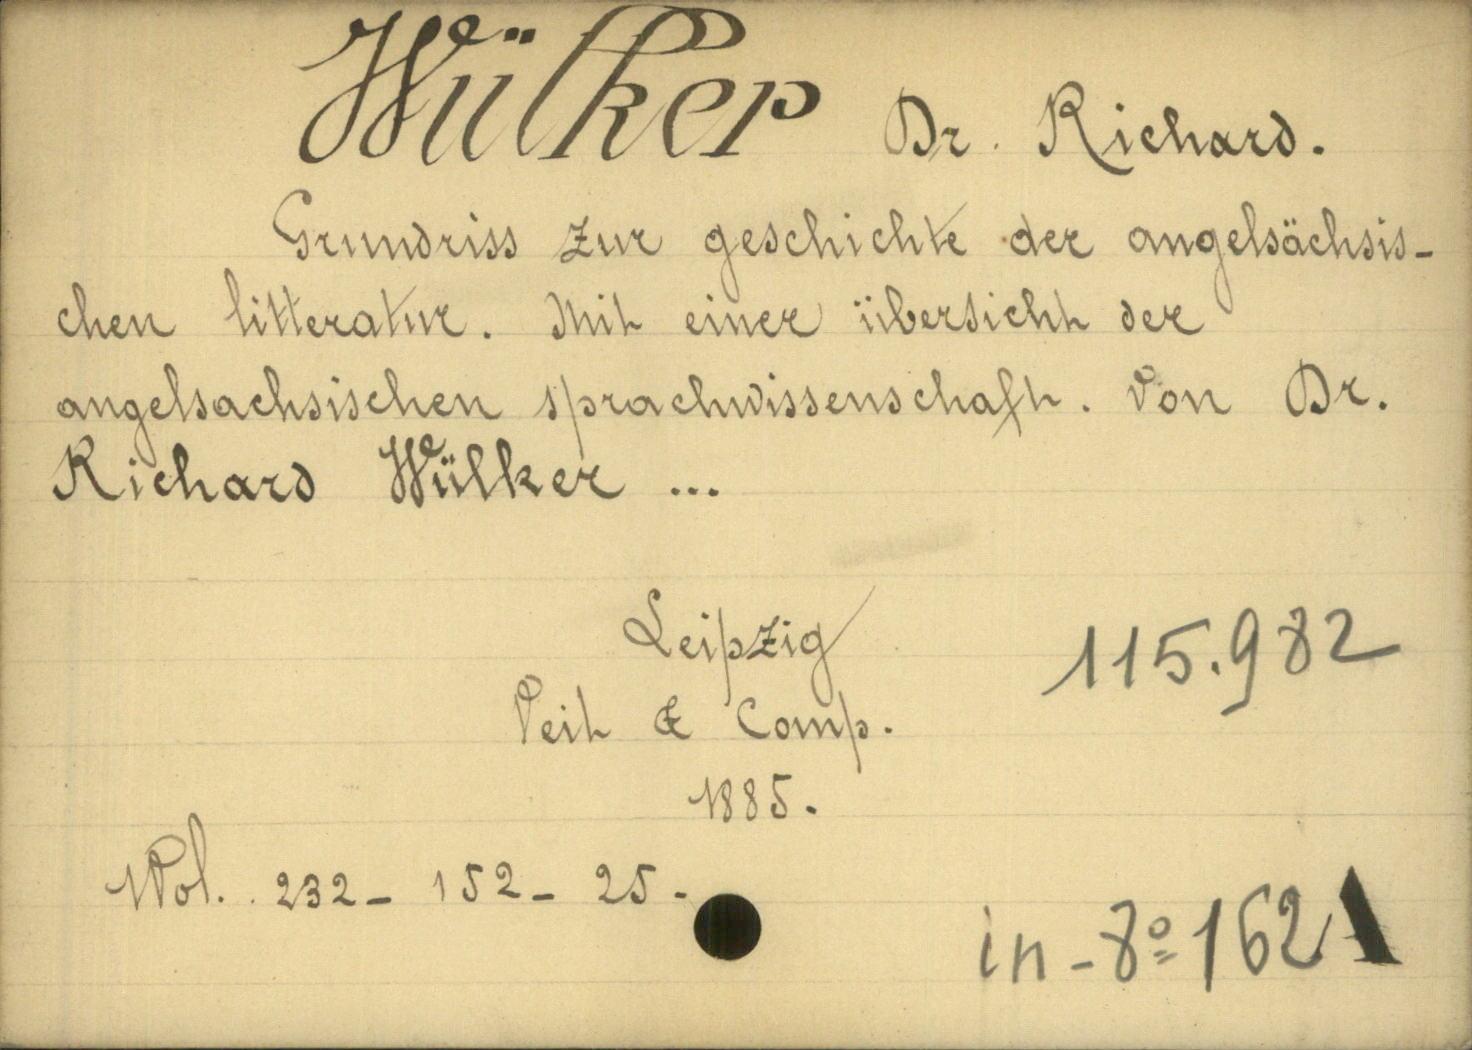 Wülker Dr. Richard.
Grundriss zur geschichte der angelsächsis-
chen litteratur. Mit einer übersicht der
angelsachsischen sprachwissenschaft. Von Dr.
Richard Wülker ...
Leipzig
115.982
Veit & Comp.
1885.
1 Vol. 232 - 152 - 25.
in-8º 162